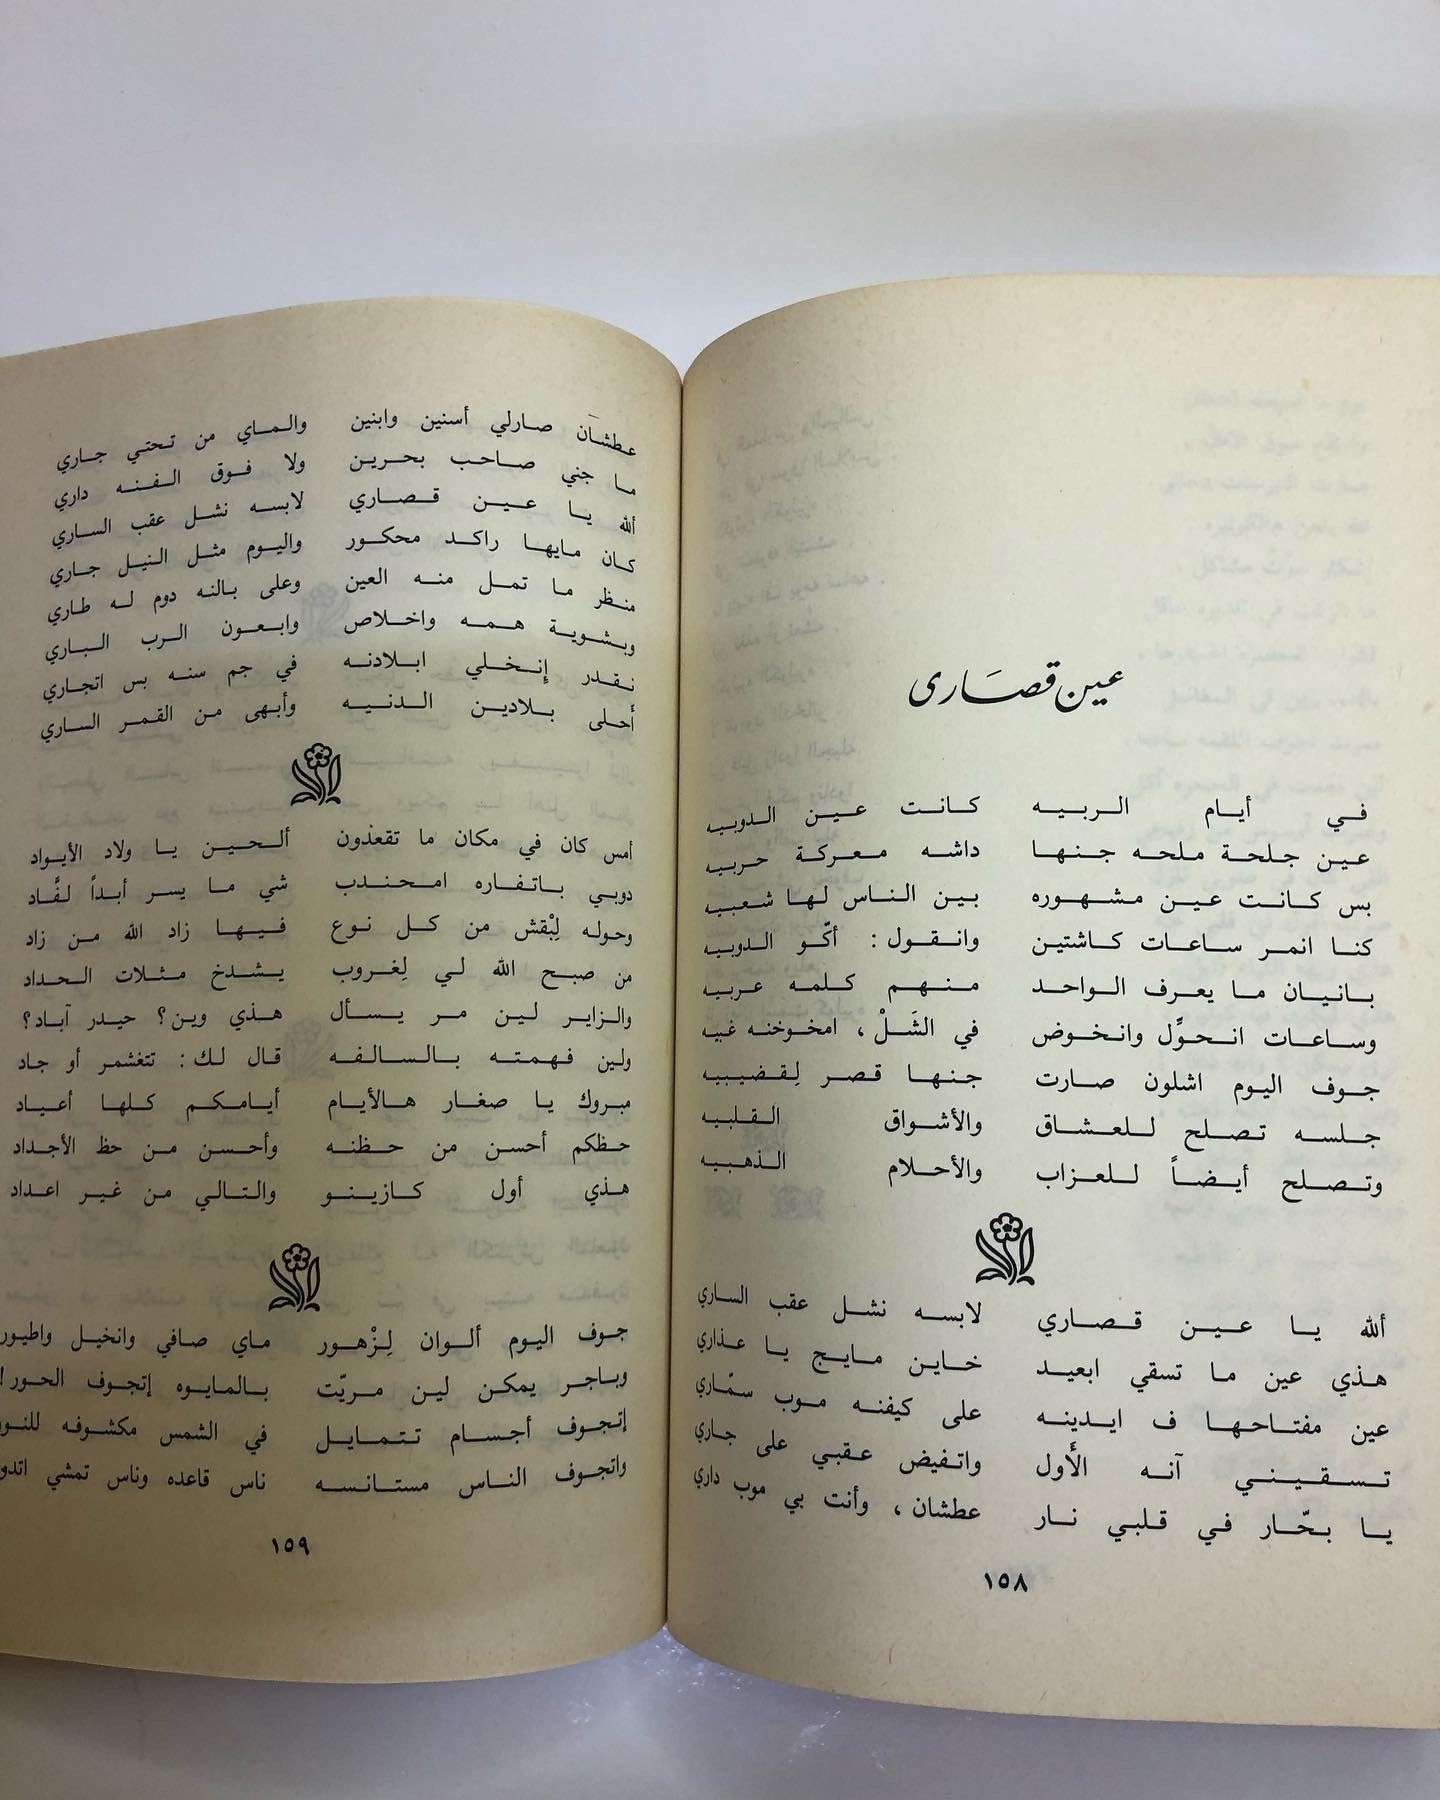 عين قصارى
في أيام الربيه كانت عين الدوبيه
عين جلحة ملحه جنها داشه معركة حربيه
بس كانت عين مشهوره بين الناس لها شعبيه
كنا انمر ساعات كاشتين وانقول : أكّو الدوبيه
بانيان ما يعرف الواحد منهم كلمه عربيه
وساعات انحوِّل وانخوض في الشَلْ ، امخوخنه غبيه
جوف اليوم اشلون صارت جنها قصر لِقضيبيه
جلسه تصلح للعشاق والأشواق القلبيه
وتصلح أيضاً للعزاب والأحلام الذهبيه
الله يا عين قصاري لابسه نشل عقب الساري
هذي عين ما تسقي ابعيد خاين مايج يا عذاري
عين مفتاحها ف ايدينه على كيفنه موب سمّاري
تسقيني آنه الأَول واتفيض عقبي على جاري
يا بحّار في قلبي نار عطشان ، وأنت بي موب داري
١٥٨
عطشان صارلي أسنين وابنين والماي من تحتي جاري
ما جني صاحب بحرين ولا فوق الفنه داري
الله يا عين قصاري لابسه نشل عقب الساري
كان مايها راكد محكور واليوم مثل النيل جاري
منظر ما تمل منه العين وعلى بالنه دوم له طاري
وبشوية همه واخلاص وابعون الرب الباري
نقدر إنخلي ابلادنه في جم سنه بس اتجاري
أحلى بلادين الدنيه وأبهى من القمر الساري
أمس كان في مكان ما تقعذون ألحين يا ولاد الأيواد
دوبي باتفاره امحندب شي ما يسر أبداً لفَّاد
وحوله لِبْقش من كل نوع فيها زاد الله من زاد
من صبح الله لي لِغروب يشدخ مثلات الحداد
والزاير لين مر يسأل هذي وين؟ حيدر آباد؟
ولين فهمته بالسالفه قال لك : تتغشمر أو جاد
مبروك يا صغار هالأيام أيامكم كلها أعياد
حظكم أحسن من حظنه وأحسن من حظ الأجداد
هذي أول كازينو والتالي من غير اعداد
جوف اليوم ألوان لِزْهور ماي صافي وانخيل واطيور
وباجر يمكن لين مريّت بالمايوه إتجوف الحور!
إتجوف أجسام تتمايل في الشمس مكشوفه للنور
واتجوف الناس مستانسه ناس قاعده وناس تمشي
١٥٩